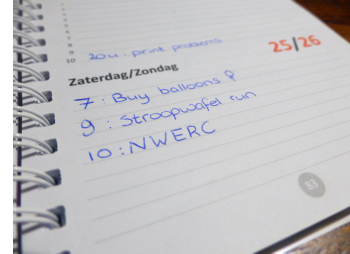 8
9
10 20u: print problems
Zaterdag/Zondag 25/26
7: Buy balloons
9: Stroopwafel run
10: NWERC
83